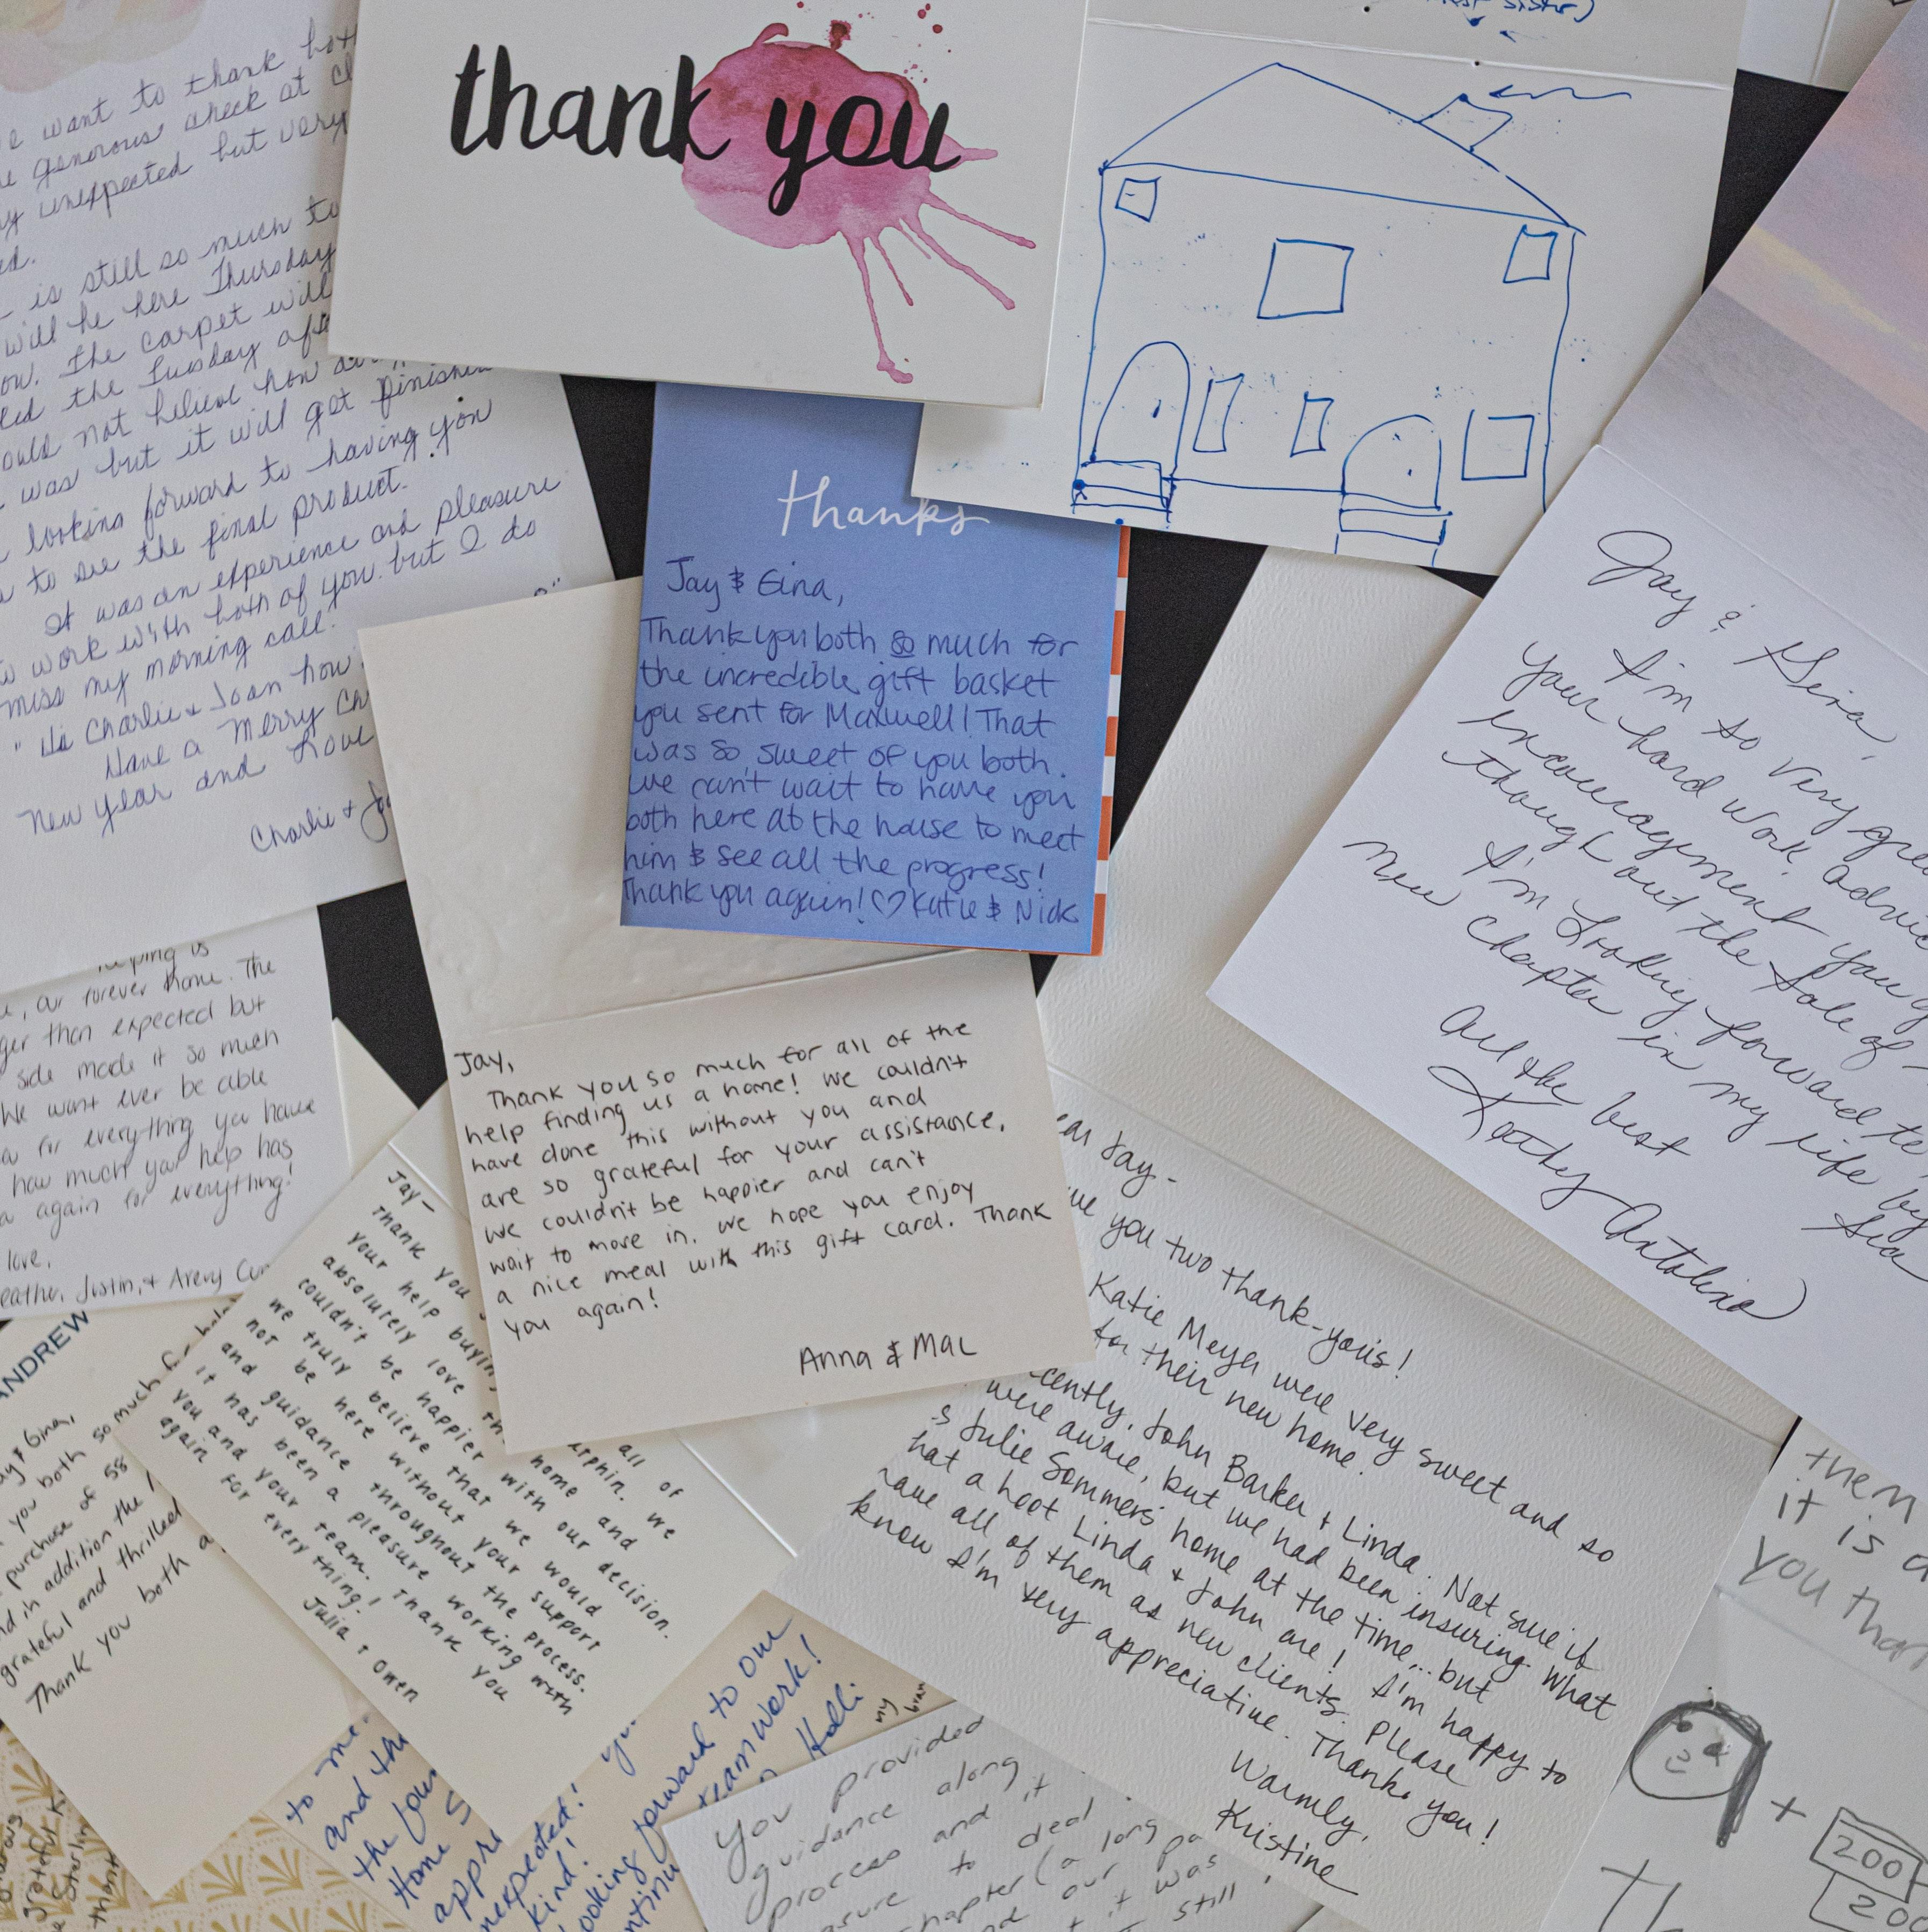 want to thank
generous check at
unexpected but very
is still so much to
will be here Thursday
The carpet will
the Tuesday
not believe how
was but it will get finished
looking forward to having you
to see the final product.
It was an experience and pleasure
to work with both of you but I do
miss my morning call.
"Hi Charlie + Joan how
Have a Merry
New Year and
Charlie +
thank you
sister)
thanks
Jay & Gina,
Thank you both so much for
the incredible gift basket
you sent for Maxwell! That
was so sweet of you both.
We can't wait to have you
both here at the house to meet
him & see all the progress!
Thank you again! ♡ Katie & Nick
Jay & Gina,
I'm so very
your hard work,
encouragement you
though out the sale of
I'm looking forward to
new chapter in my life by
All the best
Kathy
is
our forever home. The
than expected but
side made it so much
We won't ever be able
for everything you have
how much your help has
again for everything!
love,
Justin, + Avery
Jay,
Thank you so much for all of the
help finding us a home! We couldn't
have done this without you and
are so grateful for your assistance.
We couldn't be happier and can't
wait to move in. We hope you enjoy
a nice meal with this gift card. Thank
you again!
Anna & Mac
Jay-
Thank you all of
your help buying We
absolutely love home and
couldn't be happier with our decision.
we truly believe that we would
not be here without your support
and guidance throughout the process.
it has been a pleasure working with
you and your team. Thank you
again for everything!
Julia + Owen
Jay-
you two thank-you's!
Katie Meyer were very sweet and so
for their new home.
John Barker + Linda. Not sure if
were aware, but we had been insuring
Julie Sommers' home at the time... but what
a hoot Linda & John are! I'm happy to
have all of them as new clients. Please
know I'm very appreciative. Thank you!
Warmly,
Kristine
ANDREW
Gina,
you both so much
purchase of 58
in addition the
grateful and thrilled
Thank you both
to me.
and the
the
Home
unexpected!
kind!
looking forward to our
teamwork!
Holli
my
you provided
guidance along
process and it
to deal
chapter (a long
our
it was
still
them
it is
you than
+
200
grateful